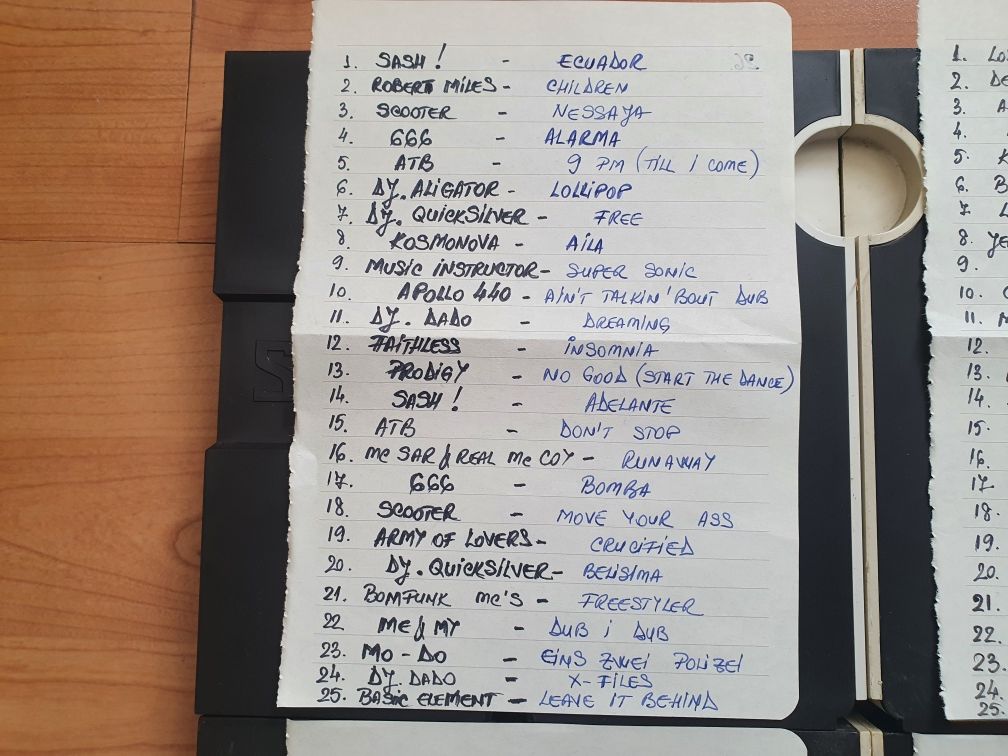 1. SASH! - ECUADOR
2. ROBERT MILES - CHILDREN
3. SCOOTER - NESSAJA
4. 666 - ALARMA
5. ATB - 9 PM (TILL I COME)
6. DJ. ALIGATOR - LOLLIPOP
7. DJ. QUICKSILVER - FREE
8. KOSMONOVA - AILA
9. MUSIC INSTRUCTOR - SUPER SONIC
10. APOLLO 440 - AIN'T TALKIN' BOUT DUB
11. DJ. DADO - DREAMING
12. FAITHLESS - INSOMNIA
13. PRODIGY - NO GOOD (START THE DANCE)
14. SASH! - ADELANTE
15. ATB - DON'T STOP
16. MC SAR & REAL MC COY - RUNAWAY
17. 666 - BOMBA
18. SCOOTER - MOVE YOUR ASS
19. ARMY OF LOVERS - CRUCIFIED
20. DJ. QUICKSILVER - BELISIMA
21. BOMFUNK MC'S - FREESTYLER
22 ME & MY - DUB I DUB
23. MO-DO - EINS ZWEI POLIZEI
24. DJ. DADO - X-FILES
25. BASIC ELEMENT - LEAVE IT BEHIND
1. LO
2. DE
3. A
4.
5. K
6. B
7.
8. YE
9.
10.
11. M
12.
13.
14.
15.
16.
17.
18.
19.
20.
21.
22.
23.
24.
25.